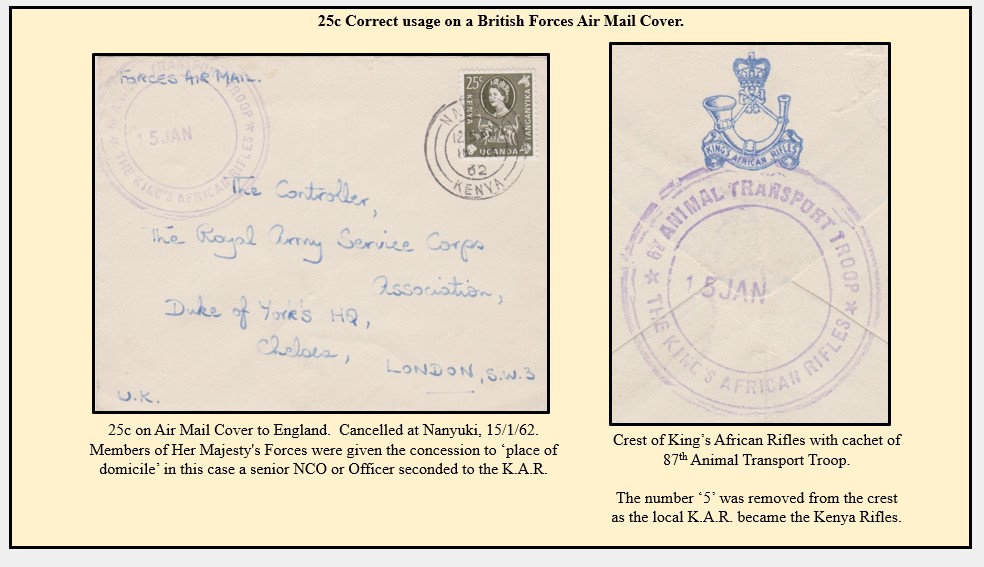 25c Correct usage on a British Forces Air Mail Cover.
FORCES AIR MAIL.
ANIMAL TRANSPORT TROOP
15 JAN
THE KING'S AFRICAN RIFLES
25c
KENYA
UGANDA
TANGANYIKA
62
KENYA
The Controller,
The Royal Army Service Corps
Association,
Duke of York's HQ,
Chelsea,
LONDON, S.W.3
U.K.
KING'S AFRICAN RIFLES
ANIMAL TRANSPORT TROOP
15 JAN
THE KING'S AFRICAN RIFLES
25c on Air Mail Cover to England. Cancelled at Nanyuki, 15/1/62.
Members of Her Majesty's Forces were given the concession to ‘place of
domicile’ in this case a senior NCO or Officer seconded to the K.A.R.
Crest of King’s African Rifles with cachet of
87th Animal Transport Troop.
The number ‘5’ was removed from the crest
as the local K.A.R. became the Kenya Rifles.